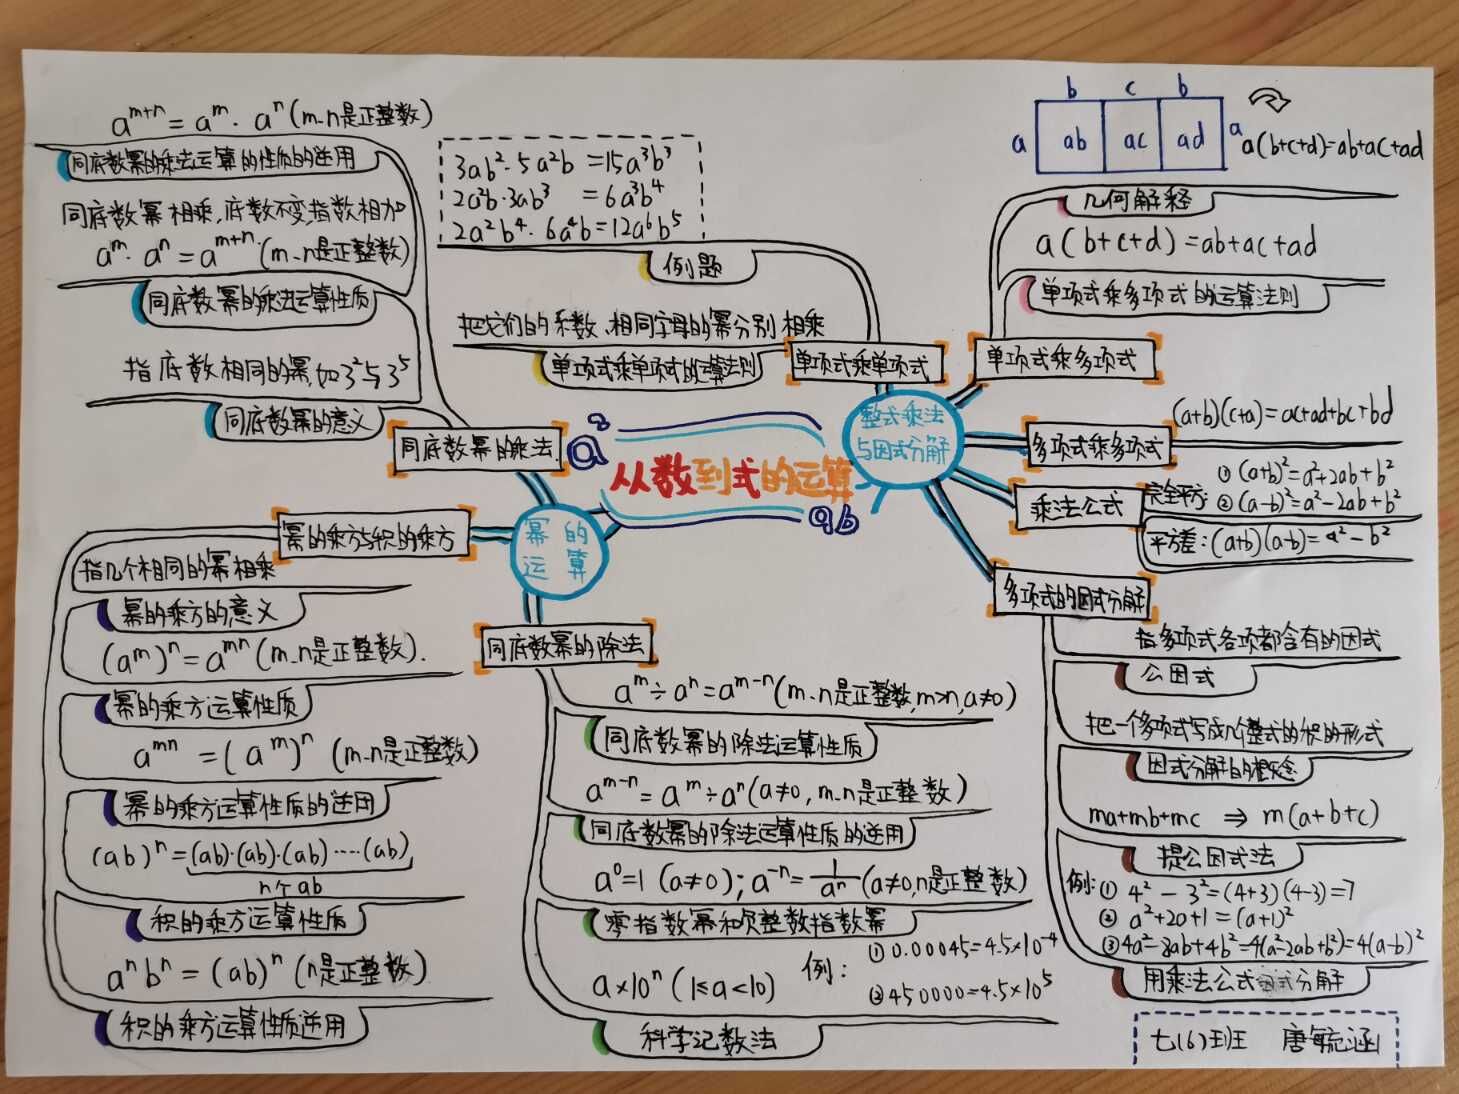 从数到式的运算
a²
ab
幂的
运算
同底数幂的乘法
a^{m+n}=a^m·a^n(m、n是正整数)
同底数幂的乘法运算的性质的逆用
同底数幂相乘,底数不变,指数相加
a^m·a^n=a^{m+n}(m、n是正整数)
同底数幂的乘法运算性质
指底数相同的幂,如3²与3⁵
同底数幂的意义
幂的乘方与积的乘方
指几个相同的幂相乘
幂的乘方的意义
(a^m)^n=a^{mn}(m、n是正整数).
幂的乘方运算性质
a^{mn}=(a^m)^n(m、n是正整数)
幂的乘方运算性质的逆用
(ab)^n=(ab)·(ab)·(ab)·····(ab)
n个ab
积的乘方运算性质
a^n b^n=(ab)^n(n是正整数)
积的乘方运算性质逆用
同底数幂的除法
a^m÷a^n=a^{m-n}(m、n是正整数,m>n,a≠0)
同底数幂的除法运算性质
a^{m-n}=a^m÷a^n(a≠0,m、n是正整数)
同底数幂的除法运算性质的逆用
a⁰=1(a≠0);a^{-n}=1/a^n(a≠0,n是正整数)
零指数幂和负整数指数幂
a×10^n(1≤a<10) 例:
①0.00045=4.5×10⁻⁴
②450000=4.5×10⁵
科学记数法
整式乘法
与因式分解
单项式乘单项式
3ab²·5a²b=15a³b³
2a²b·3ab³=6a³b⁴
2a²b⁴·6a⁴b=12a⁶b⁵
例题
把它们的系数、相同字母的幂分别相乘
单项式乘单项式的运算法则
单项式乘多项式
b c b
a ab ac ad a
a(b+c+d)=ab+ac+ad
几何解释
a(b+c+d)=ab+ac+ad
单项式乘多项式的运算法则
多项式乘多项式
(a+b)(c+a)=ac+ad+bc+bd
乘法公式
完全平方:
①(a+b)²=a²+2ab+b²
②(a-b)²=a²-2ab+b²
平方差:(a+b)(a-b)=a²-b²
多项式的因式分解
指多项式各项都含有的因式
公因式
把一个多项式写成几个整式的积的形式
因式分解的概念
ma+mb+mc⇒m(a+b+c)
提公因式法
例:①4²-3²=(4+3)(4-3)=7
②a²+2a+1=(a+1)²
③4a²-8ab+4b²=4(a²-2ab+b²)=4(a-b)²
用乘法公式因式分解
七(6)班 唐毓涵